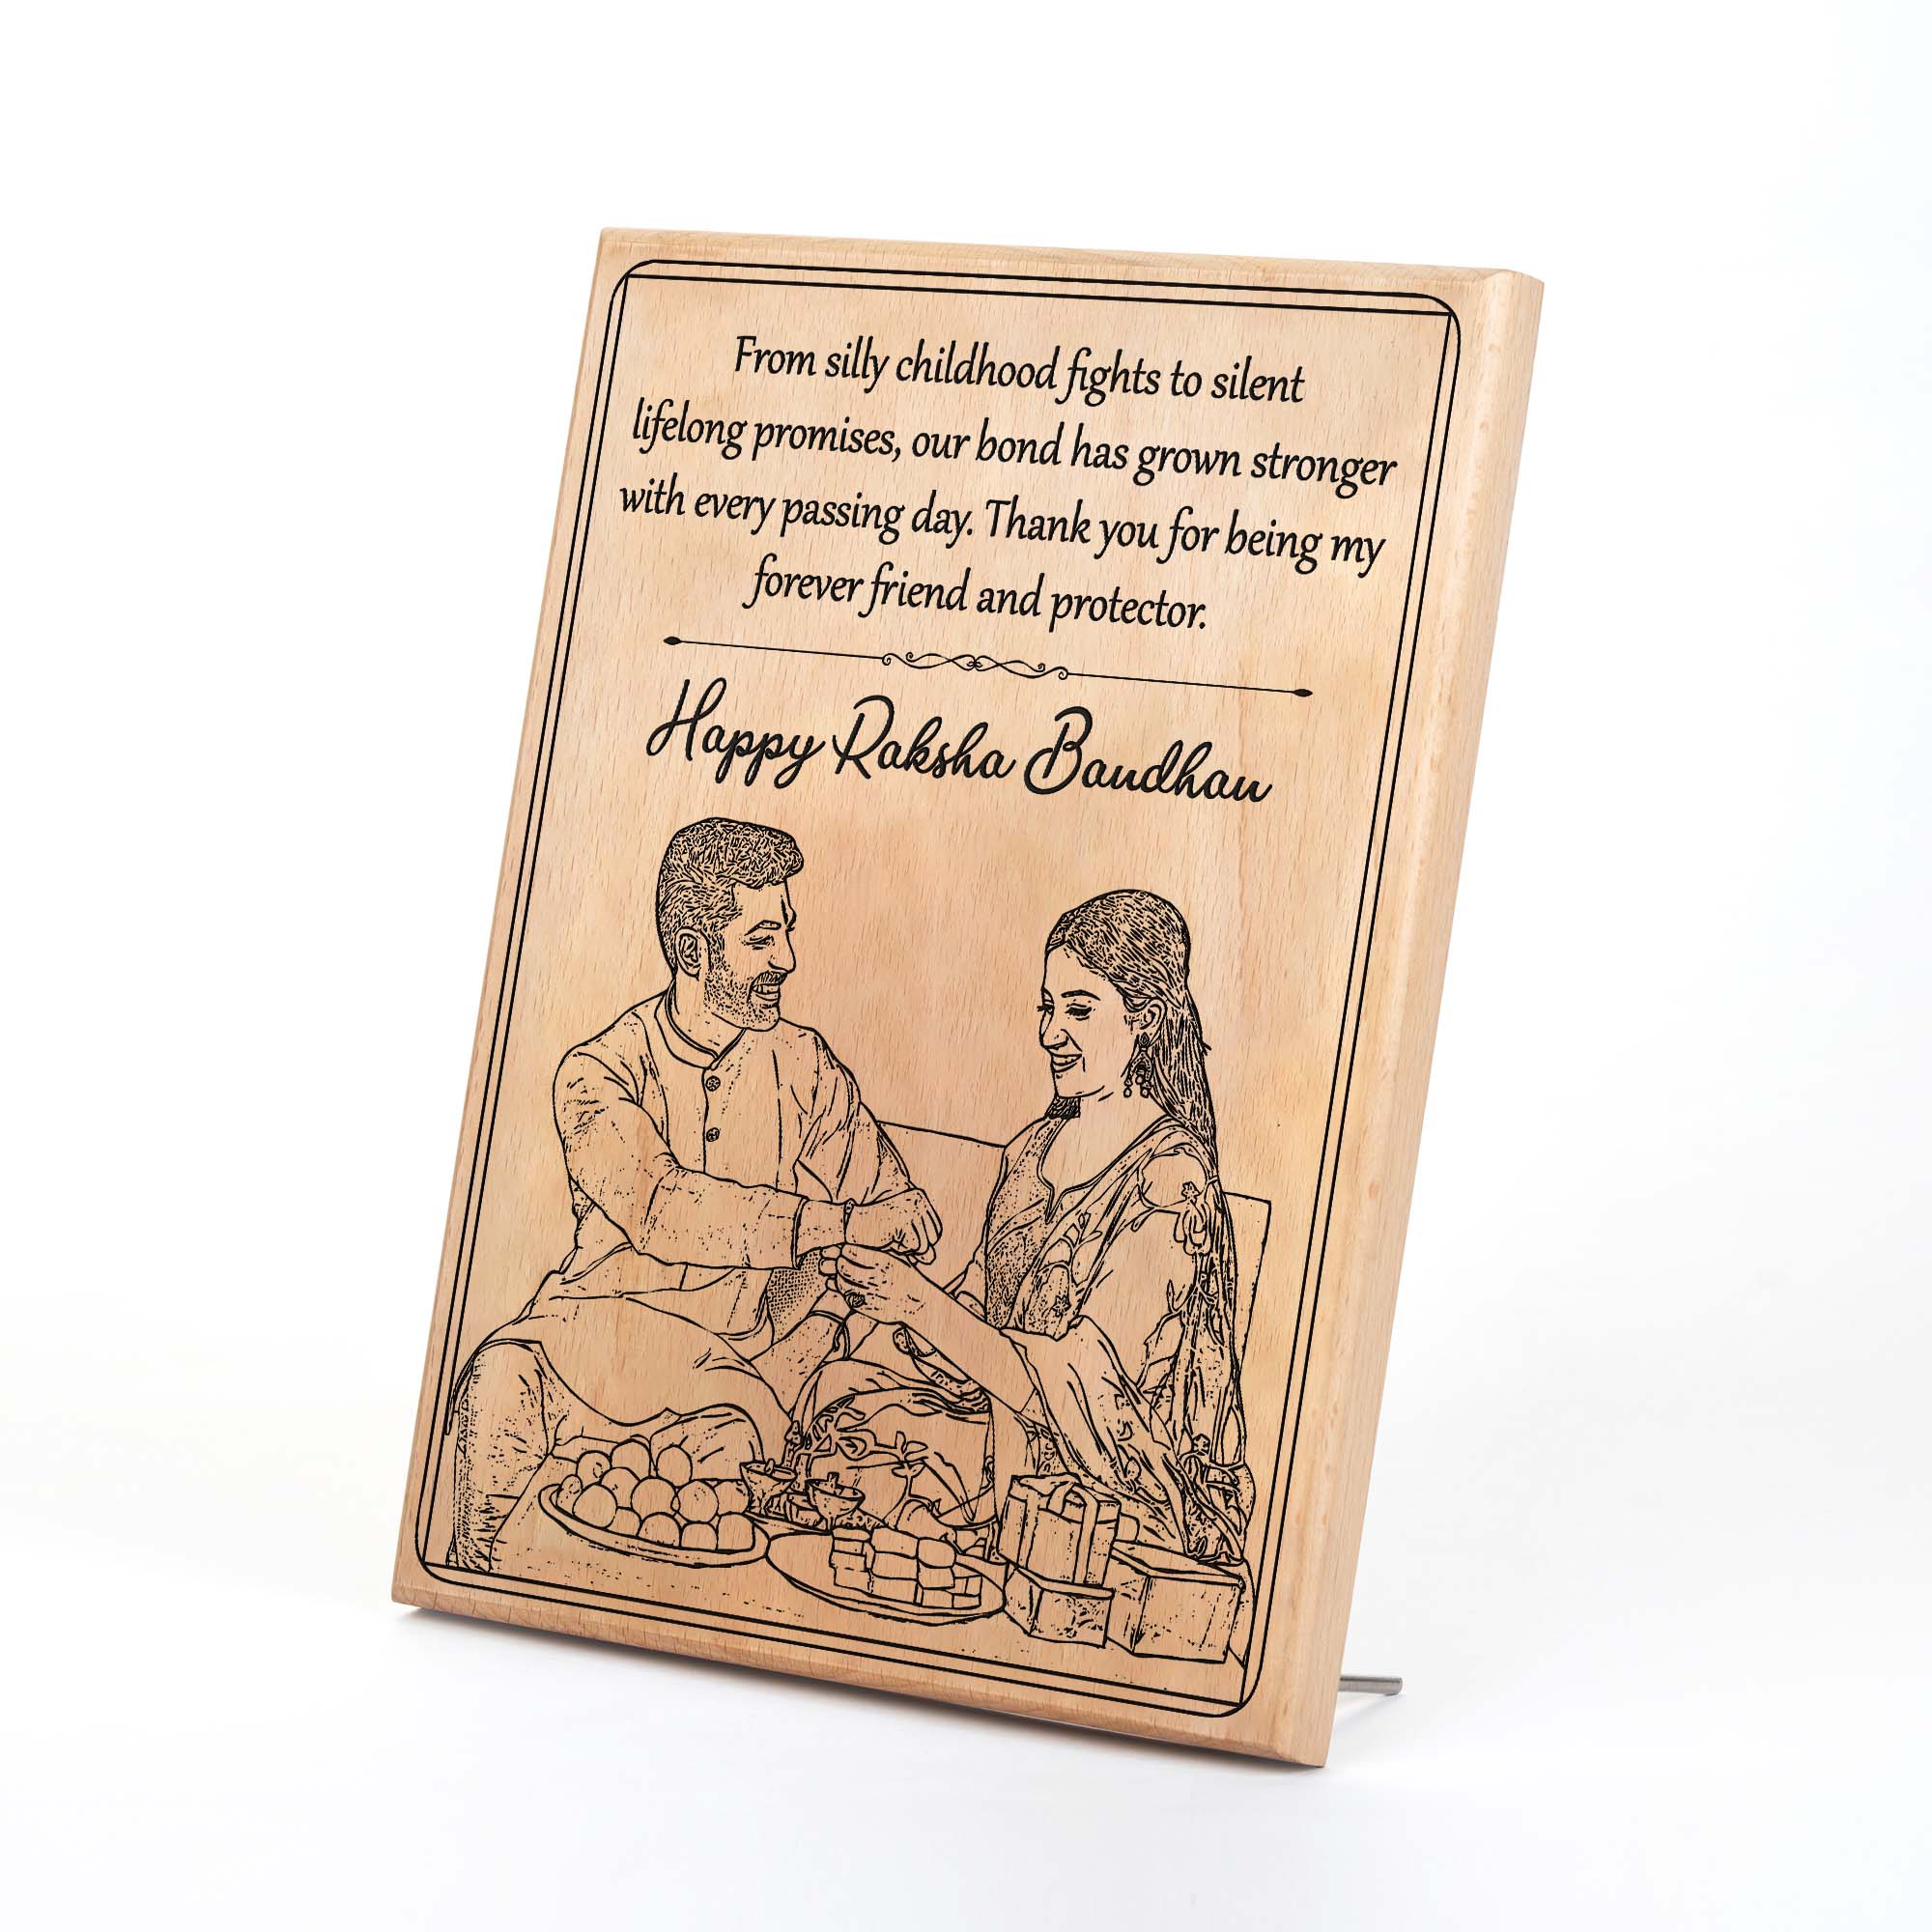 From silly childhood fights to silent
lifelong promises, our bond has grown stronger
with every passing day. Thank you for being my
forever friend and protector.
Happy Raksha Bandhan